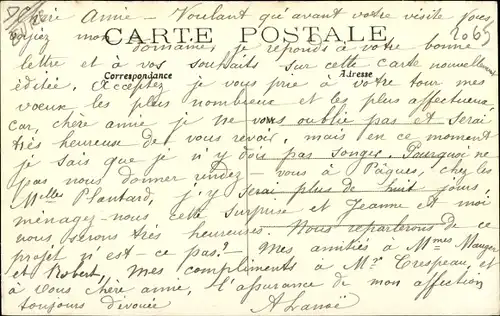 Chère Amie – Voulant qu'avant votre visite vous
voyiez mon domaine, je réponds à votre bonne
CARTE POSTALE
2065
lettre et à vos souhaits sur cette carte nouvellement
Correspondance
Adresse
éditée. Acceptez je vous prie à votre tour mes
vœux les plus nombreux et les plus affectueux
car, chère amie je ne vous oublie pas et serai
très heureuse de vous revoir, mais en ce moment
je sais que je n'y dois pas songer. Pourquoi ne
pas nous donner rendez-vous à Pâques, chez les
Melles Plantard, j'y serai plus de huit jours,
ménagez-nous cette surprise et Jeanne et moi
nous serons très heureuses. Nous reparlerons de ce
projet n'est-ce pas? – Mes amitiés à Mmes Mauger
et Robert, mes compliments à Mr Crespeau, et
à vous chère amie, l'assurance de mon affection
toujours dévouée